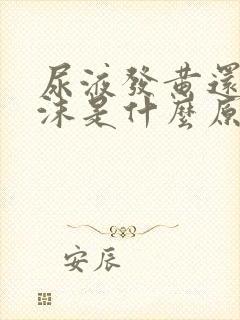 尿液發黃還
沫是什麼原
安辰